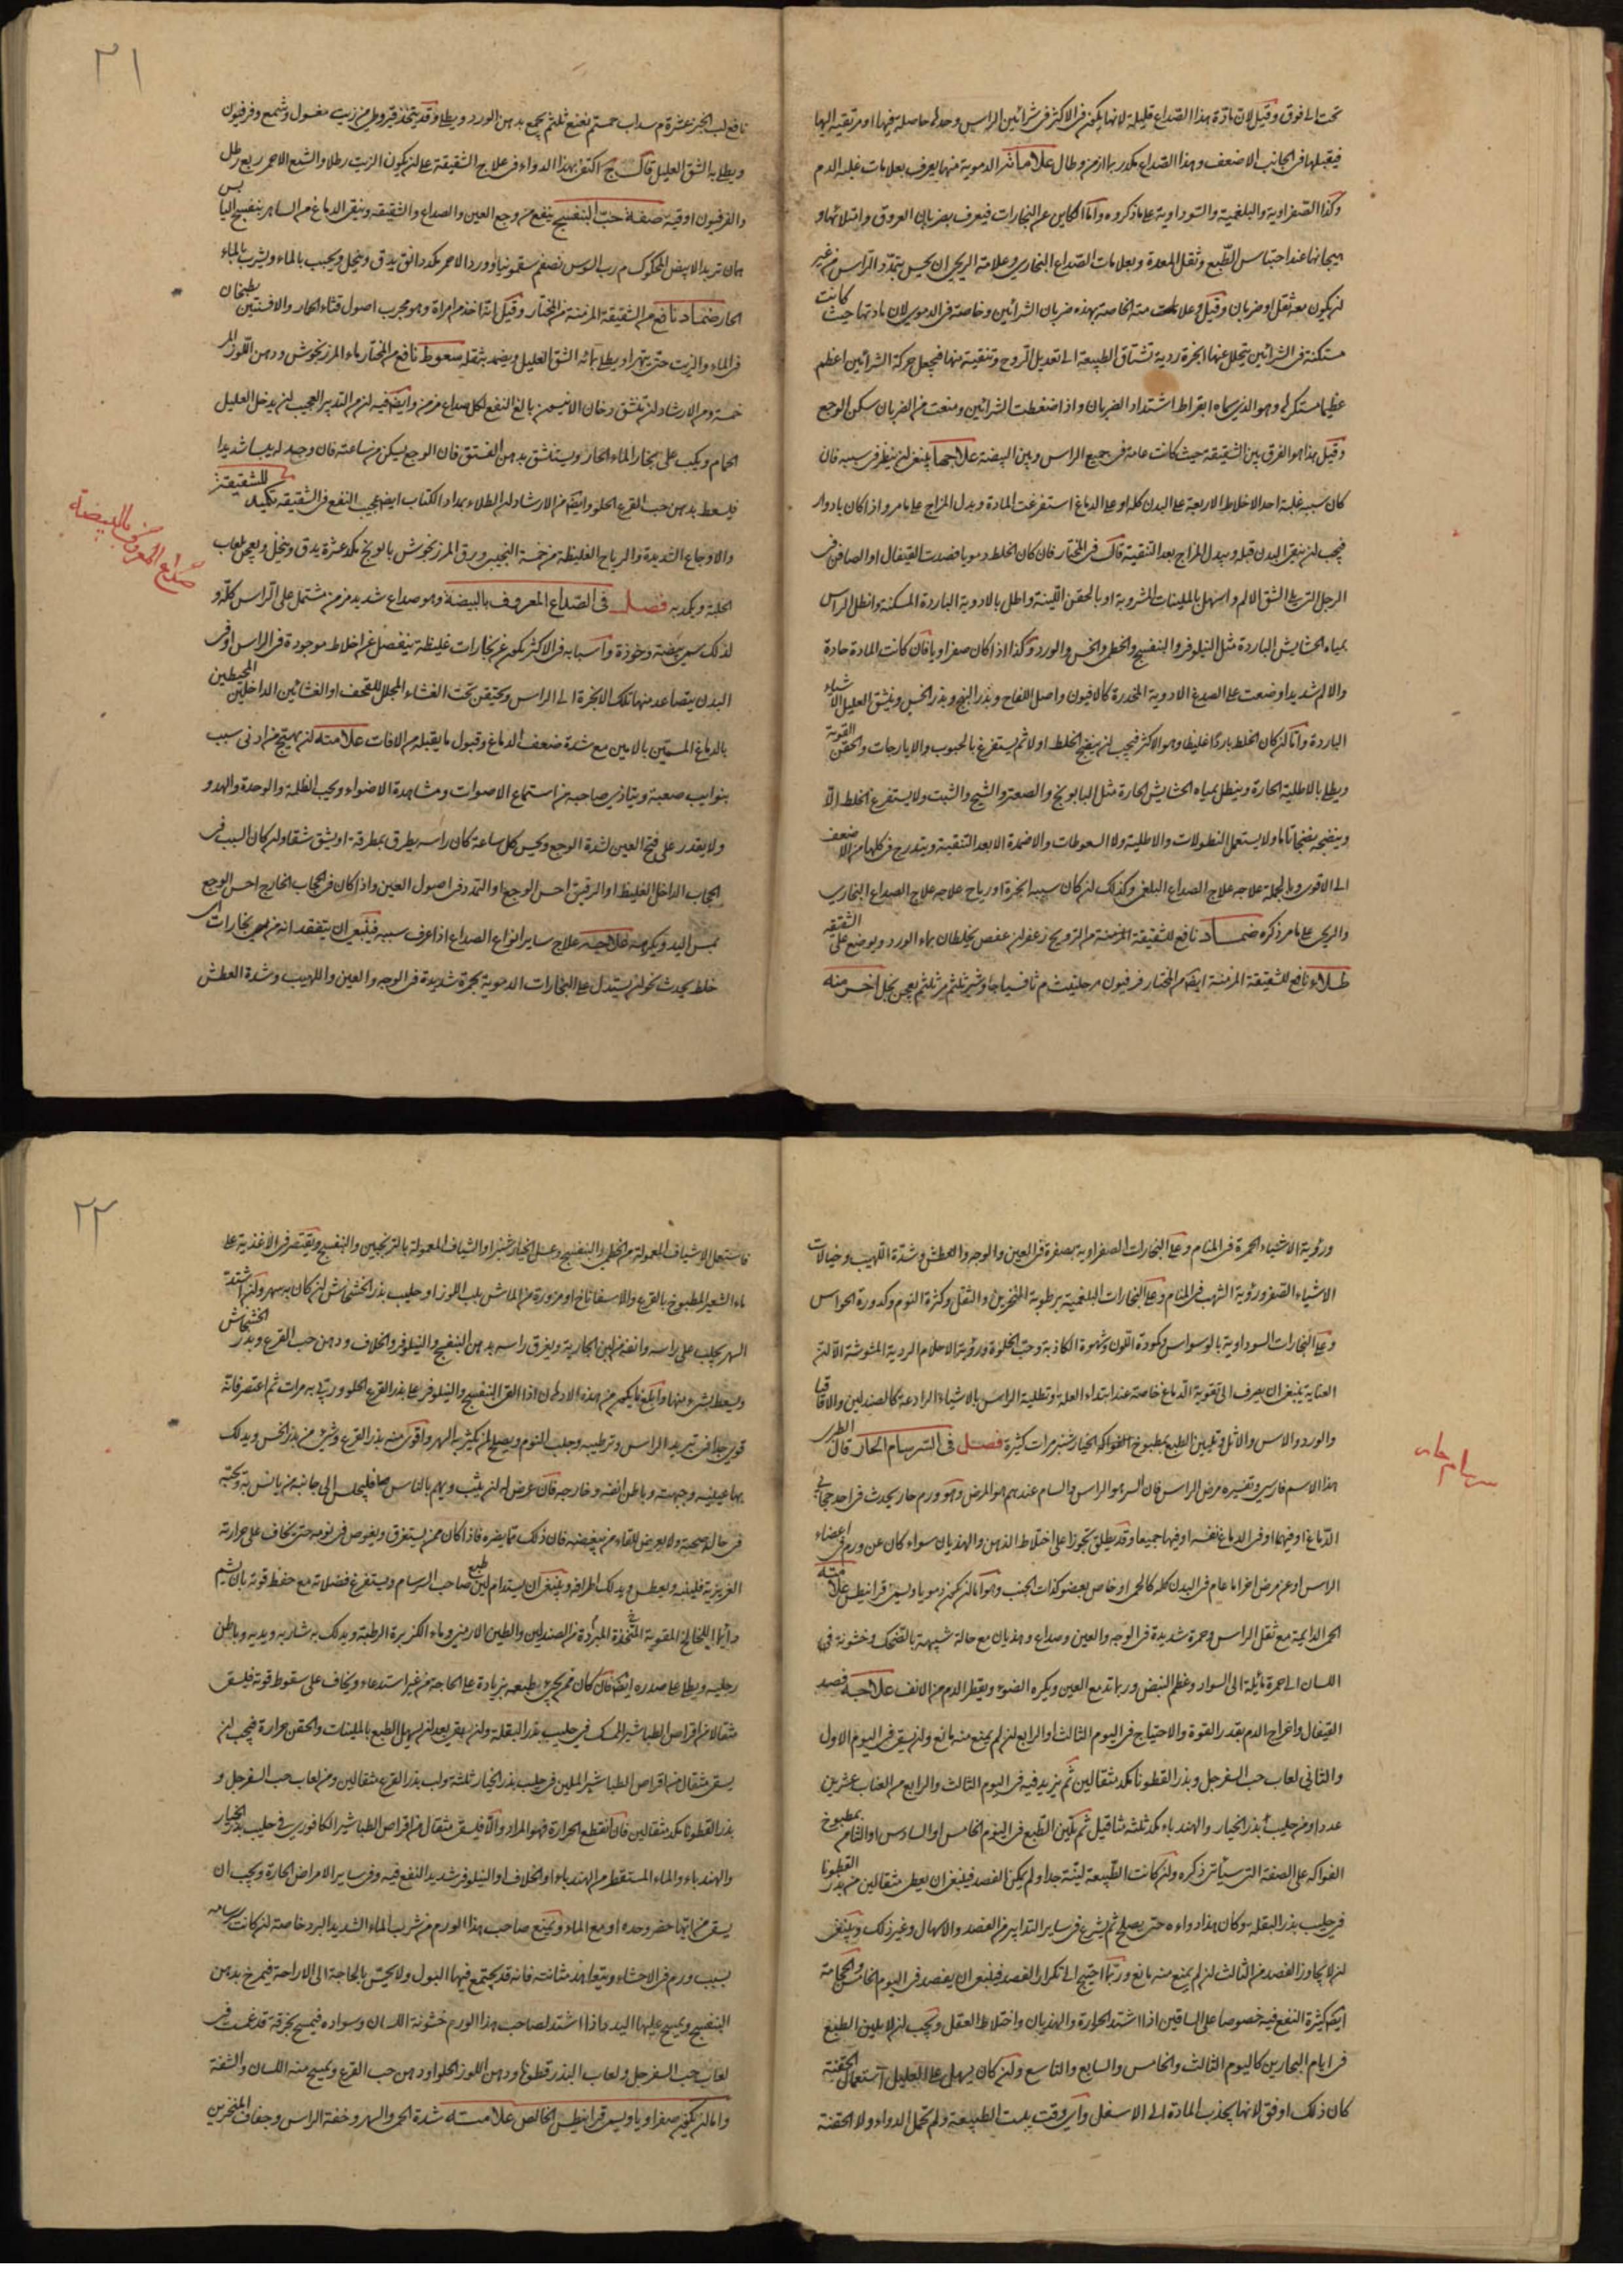 تحت الى فوق وقيل لان مادة هذا الصداع قليلة لانها يكون في الاكثر في شرائين الراس وحدها حاصلة فيها او مرتقية اليها
فيقبلها في الجانب الاضعف وهذا الصداع مكدر ربما ازمن وطال علاماته الدموية منها يعرف بعلامات غلبة الدم
وكذا الصفراوية والبلغمية والسوداوية على ما ذكروه واما الكاين عن البخارات فيعرف بضربان العروق وامتلائها و
هيجانها عند احتباس الطبع وثقل المعدة وبعلامات الصداع البخاري وعلامة الريحي ان يحس بتمدد الراس من غير
ان يكون معه ثقل او ضربان وقيل وعلامته الخاصة بهذه ضربان الشرائين وخاصة في الدموي لان مادتها حيث كانت
مستكنة في الشرائين يتحلل عنها ابخرة ردية تشتاق الطبيعة الى تعديل الروح وتنقيته منها فيجعل حركة الشرائين اعظم
عظيما مستكرها وهو الذي سماه ابقراط اشتداد الضربان واذا ضغطت الشرائين ومنعت من الضربان سكن الوجع
وقيل هذا هو الفرق بين الشقيقة حيث كانت عامة في جميع الراس وبين البيضة علاجها ينبغي ان ينظر في سببه فان
كان سببه غلبة احد الاخلاط الاربعة على البدن كله او على الدماغ استفرغت المادة وبدل المزاج على ما مر واذا كان بادوار
فيجب ان ينقى البدن قبله ويبدل المزاج بعد التنقية قال في المختار فان كان الخلط دمويا فصدت القيفال او الصافن في
الرجل التي على الشق الالم واسهل بالملينات المشروبة او بالحقن اللينة واطل بالادوية الباردة المسكنة وانطل الراس
بمياه الحشايش الباردة مثل النيلوفر والبنفسج والخطمي والخس والورد وكذا اذا كان صفراويا فان كانت المادة حادة
والالم شديدا وضعت على الصدغ الادوية المخدرة كالافيون واصل اللفاح وبذر البنج وبذر الخس وينشق العليل الاشياء
الباردة واما ان كان الخلط باردا غليظا وهو الاكثر فيجب ان ينضج الخلط اولا ثم يستفرغ بالحبوب والايارجات والحقن القوية
ويطلى بالاطلية الحارة وينطل بمياه الحشايش الحارة مثل البابونج والصعتر والشيح والشبت ولا يستفرغ الخلط الا
وينضجه نضجا تاما ولا يستعمل النطولات والاطلية ولا السعوطات والاضمدة الا بعد التنقية ويتدرج في كلها من الاضعف
الى الاقوى وبالجملة علاجه علاج الصداع البلغمي وكذلك ان كان سببه ابخرة او رياح علاجه علاج الصداع البخاري
والريحي على ما مر ذكره ضماد نافع للشقيقة المزمنة من الترويح زعفران عفص يخلطان بماء الورد ويوضع على الشقيقة
طلاء نافع للشقيقة المزمنة ايضا من المختار فرفيون م حلتيت م ثافسيا جاوشير ثلثم مر ثلثم يعجن بخل اخر منه
٢١
نافع لب الخبز عشرة م سداب خمستم نعنع ثلثم يجمع بدهن الورد ويطلى وقد يتخذ قيروطي من زيت مغسول وشمع وفرفيون
ويطلى به الشق العليل قال ج اكتفى بهذا الدواء في علاج الشقيقة على ان يكون الزيت رطلا والشمع الاحمر ربع رطل
والفرفيون اوقية صفة حب البنفسج ينفع من وجع العين والصداع والشقيقة وينقى الدماغ من الساهر بنفسج اليابس
الحار ضماد نافع من الشقيقة المزمنة من المختار وقيل انه اخذ من امراة وهو مجرب اصول قثاء الحمار والافسنتين يطبخان
في الماء والزيت حتى يتهرا ويطلى بمائه الشق العليل ويضمد بثفله سعوط نافع من المختار ماء المرزنجوش ودهن اللوز المر
خمسة ومن الارشاد ان تنشق دخان الانيسون بالغ النفع لكل صداع مزمن وايضا فيه ان من التدبير العجيب ان يدخل العليل
الحمام ويكب على بخار الماء الحار ويستنشق بدهن الفستق فان الوجع يسكن من ساعته فان وجد لهيبا شديدا
فليسعط بدهن حب القرع الحلو وايضا من الارشاد ان الطلاء بمداد الكتاب ايضا عجيب النفع في الشقيقة تكميد للشقيقة
والاوجاع الشديدة والرياح الغليظة ورق المرزنجوش بابونج مكد عشرة يدق وينخل ويعجن بلعاب
الحلبة ويكمد به فصل في الصداع المعروف بالبيضة وهو صداع شديد مزمن مشتمل على الراس كله و
صداع المعروف بالبيضة
لذلك سمي بيضة وخوذة واسبابه في الاكثر يكون عن بخارات غليظة ينفصل عن اخلاط موجودة في الراس او في
البدن يتصاعد منها تلك الابخرة الى الراس وتحتقن تحت الغشاء المجلل للقحف او الغشائين الداخلين المحيطين
بالدماغ المسميين بالامين مع شدة ضعف الدماغ وقبول ما يقبله من الافات علامته ان يهيج من ادنى سبب
بنوايب صعبة ويتاذى صاحبه من استماع الاصوات ومشاهدة الاضواء ويحب الظلمة والوحدة والهدو
ولا يقدر على فتح العين لشدة الوجع ويحس كل ساعة كان راسه يطرق بمطرقة او يشق شقا وان كان السبب في
الحجاب الداخل الغليظ او الرقيق احس الوجع او التمدد في اصول العين واذا كان في الحجاب الخارج احس الوجع
بمس اليد ويكرهه علاجه علاج ساير انواع الصداع اذا عرف سببه فينبغي ان يتفقد انه من بخارات اي
خلط يحدث نحو ان يستدل على البخارات الدموية بحمرة شديدة في الوجه والعين واللهيب وشدة العطش
ورؤية الاشياء الحمرة في المنام وعلى البخارات الصفراوية بصفرة في العين والوجه والعطش وشدة اللهيب وخيالات
الاشياء الصفر ورؤية الشهب في المنام وعلى البخارات البلغمية برطوبة المنخرين والثقل وكثرة النوم وكدورة الحواس
وعلى البخارات السوداوية بالوسواس وكمودة اللون وشهوة الكاذبة وحب الخلوة ورؤية الاحلام الردية المشوشة الا ان
العناية ينبغي ان يصرف الى تقوية الدماغ خاصة عند ابتداء العلة وتطلية الراس بالاشياء الرادعة كالصندلين والاقاقيا
والورد والاس والاثل وتليين الطبع بمطبوخ الفواكه الخيارشنبر مرات كثيرة فصل في السرسام الحار قال الطبري
سرسام حار
هذا الاسم فارسي وتفسيره مرض الراس فان السر هو الراس والسام عندهم هو المرض وهو ورم حار يحدث في احد حجابي
الدماغ او فيهما او في الدماغ نفسه او فيها جميعا وقد يطلق تجوزا على اختلاط الذهن والهذيان سواء كان عن ورم في اعضاء
الراس او عن مرض اخر اما عام في البدن كله كالحمى او خاص بعضو كذات الجنب وهو اما ان يكون دمويا ويسمى قرانيطس علامته
الحمى الدايمة مع ثقل الراس وحمرة شديدة في الوجه والعين وصداع وهذيان مع حالة شبيهة بالضحك وخشونة في
اللسان الى حمرة مائلة الى السواد وعظم النبض وربما تدمع العين ويكره الضوء ويقطر الدم من الانف علاجه فصد
القيفال واخراج الدم بقدر القوة والاحتياج في اليوم الثالث او الرابع ان لم يمنع منه مانع وان يسقى في اليوم الاول
والثاني لعاب حب السفرجل وبذر القطونا مكد مثقالين ثم يزيد فيه في اليوم الثالث والرابع من العناب عشرين
عددا ومن حليب بذر الخيار والهندباء مكد ثلثة مثاقيل ثم تليين الطبع في اليوم الخامس او السادس او الثامن بمطبوخ
الفواكه على الصفة التي سيأتي ذكره وان كانت الطبيعة لينة جدا ولم يمكن الفصد فينبغي ان يعطى مثقالين من بذر القطونا
في حليب بذر البقلة وكان هذا دواءه حتى يصلح ثم يشرع في ساير التدابير من الفصد والاسهال وغير ذلك وينبغي
ان لا يجاوز الفصد من الثالث ان لم يمنع منه مانع وربما احتيج الى تكرار الفصد فينبغي ان يفصد في اليوم الخامس والحجامة
ايضا كثيرة النفع فيه خصوصا على الساقين اذا اشتد الحرارة والهذيان واختلاط العقل ويجب ان لا يلين الطبع
في ايام البحارين كاليوم الثالث والخامس والسابع والتاسع وان كان يسهل على العليل استعمال الحقنة
كان ذلك اوفق لانها يجذب المادة الى الاسفل واي وقت يبست الطبيعة ولم تحمل الدواء ولا الحقنة
٢٢
فاستعمل الاشياف المعمولة من الخطمي والبنفسج وعسل الخيارشنبر او الشياف المعمولة بالترنجبين والبنفسج ويقتصر في الاغذية على
ماء الشعير المطبوخ بالقرع والاسفاناخ او مزورة من الماش بلب اللوز او حليب بذر الخشخاش ان كان به سهر وان اشتد
السهر يحلب على راسه وانفه من لبن الجارية ويغرق راسه بدهن البنفسج والنيلوفر والخلاف ودهن حب القرع وبذر الخشخاش
ويسعط بشيء منها وابلغ ما يكون من هذه الادهان اذا القى البنفسج والنيلوفر على بذر القرع الحلو وربي به مرات ثم اعتصر فانه
قوي جدا في تبريد الراس وترطيبه وجلب النوم ويصلح ان يكثر به السهر واقوى منه بذر القرع وشيء من بذر الخس ويدلك
بها عينيه وجبهته وباطن انفه وخارجه فان عرض له ان يثب ويهم بالناس فليجلس الى جانبه من يانس به ويحبه
في حال صحته ولا يعرض للقاء من يبغضه فان ذلك مما يضره فاذا كان ممن يستغرق ويغوص في نومه حتى يخاف على حرارته
الغريزية فلينبه ويعطس ويدلك اطرافه وينبغي ان يستدام لين طبع صاحب السرسام ويستفرغ فضلاته مع حفظ قوته بان يشم
دائما اللخالخ المقوية المتخذة المبردة من الصندلين والطين الارمني وماء الكزبرة الرطبة ويدلك به شاربه ويديه وباطن
رجليه ويطلى على صدره ايضا فان كان ممن يجري طبعه بزيادة على الحاجة من غير استدعاء ويخاف على سقوط قوته فليسق
مثقالا من اقراص الطباشير الممسك في حليب بذر البقلة وان بقي بعد ان يسهل الطبع بالملينات والحقن حرارة فيجب ان
يسقى مثقال من اقراص الطباشير الملين في حليب بذر الخيار ثلثة ولب بذر القرع مثقالين ومن لعاب حب السفرجل و
بذر القطونا مكد مثقالين فان انقطع الحرارة فهو المراد والا فليسق مثقال من اقراص الطباشير الكافوري في حليب بذر الخيار
والهندباء والماء المستقطر من الهندباء او الخلاف او النيلوفر شديد النفع فيه وفي ساير الامراض الحارة ويجب ان
يسقى من ايها حضر وحده او مع الماء ويمنع صاحب هذا الورم من شرب الماء الشديد البرد خاصة ان كانت سرسامه
بسبب ورم في الاحشاء ويتعاهد مثانته فانه قد يجتمع فيها البول ولا يحس بالحاجة الى الاراحة فيمرخ بدهن
البنفسج ويمسح عليها اليد واذا اشتد لصاحب هذا الورم خشونة اللسان وسواده فيمسح بخرقة قد غمست في
لعاب حب السفرجل ولعاب البذر قطونا ودهن اللوز الحلو او دهن حب القرع ويمسح منه اللسان والشفة
واما ان يكون صفراويا ويسمى قرانيطس الخالص علامته شدة الحمى والسهر وخفة الراس وجفاف المنخرين